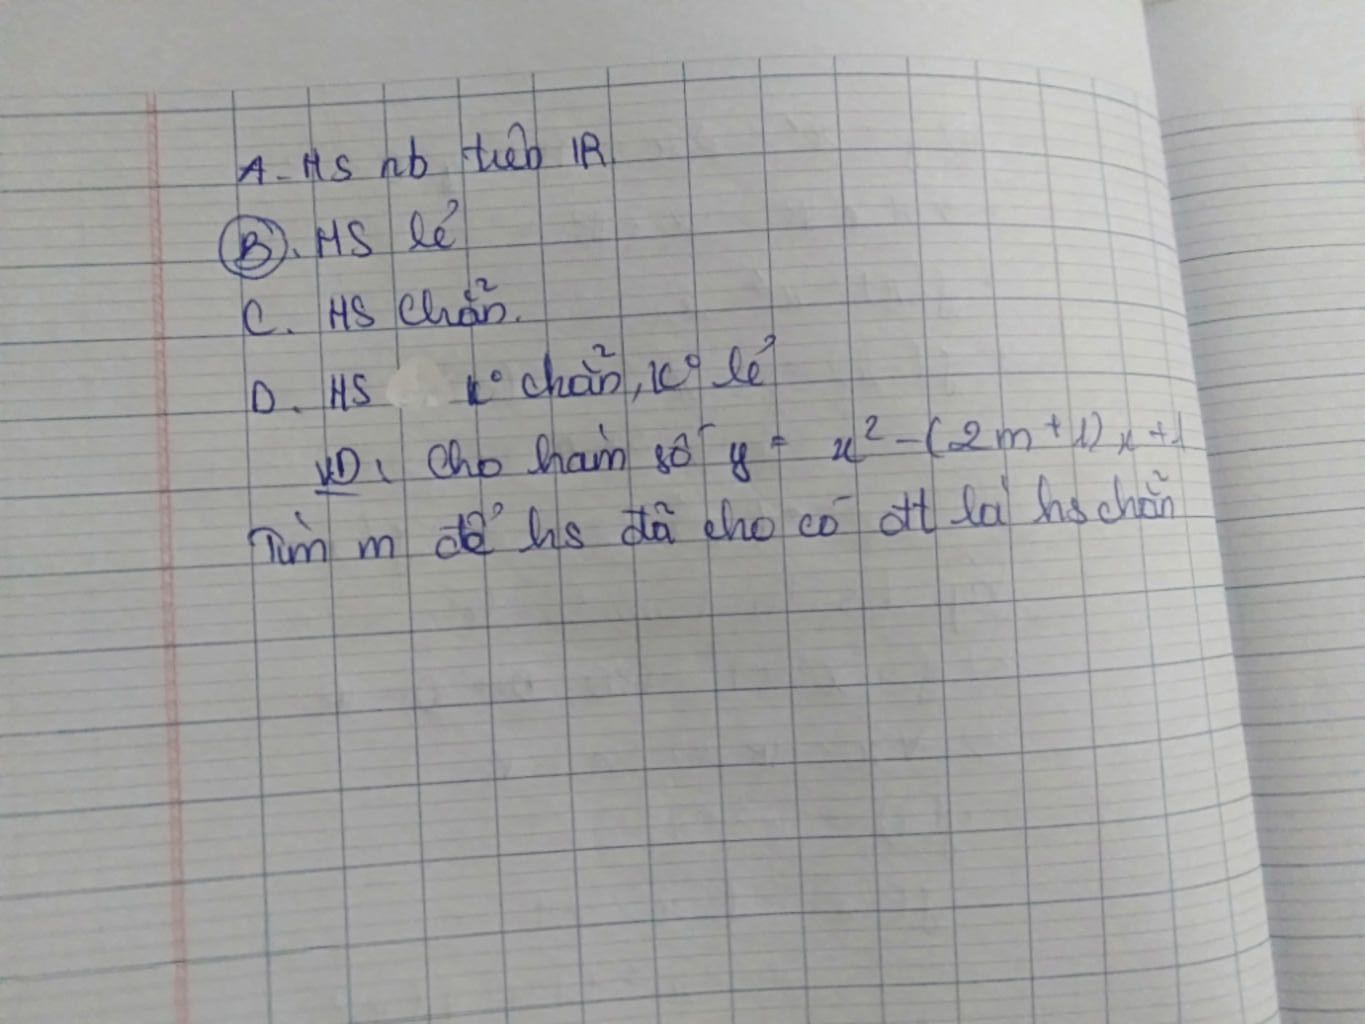 A. HS nb trên R
B. HS lẻ
C. HS chẵn.
D. HS k° chẵn, k° lẻ
VD: Cho hàm số y = x² - (2m + 1)x + 1
Tìm m để hs đã cho có đt là hs chẵn